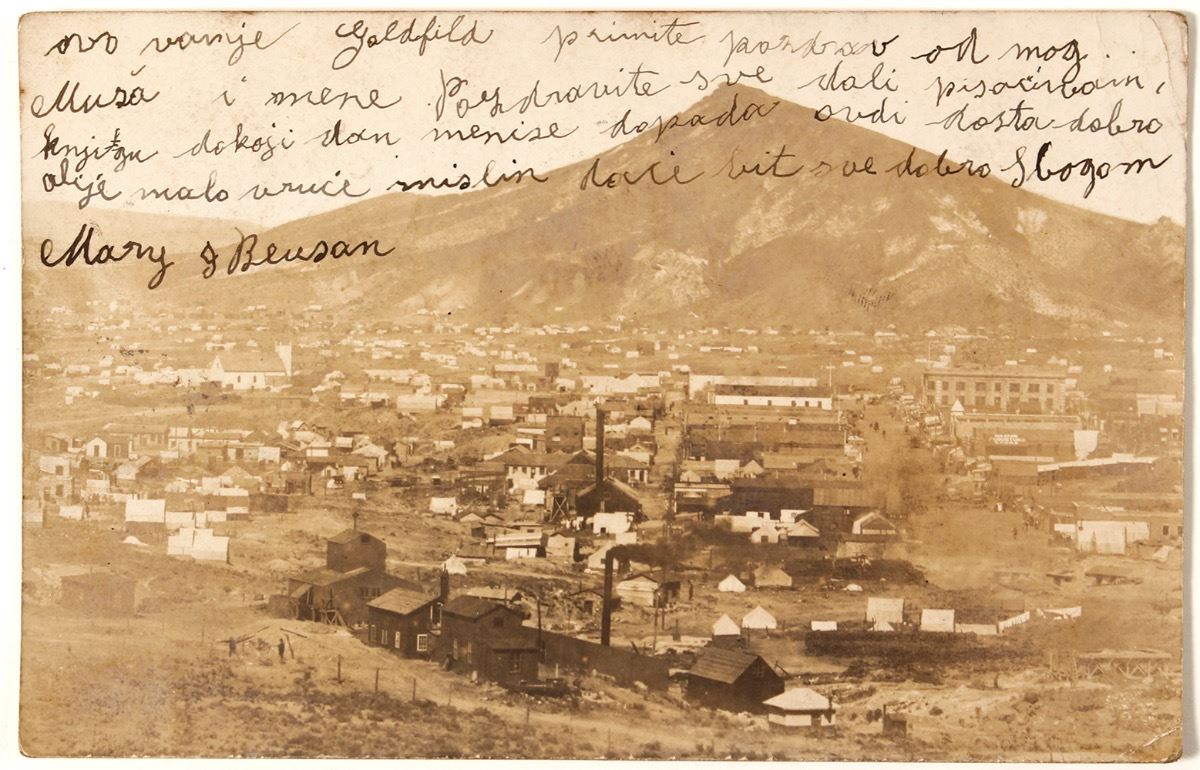 ovo vamje Goldfild primite pozdrav od mog
Muža i mene Pozdravite sve dali pisaćuvam,
knjigu dokoji dan menise dopada ovdi dosta dobro
alije malo vruće mislin daće bit sve dobro Sbogom
Mary J Beusan